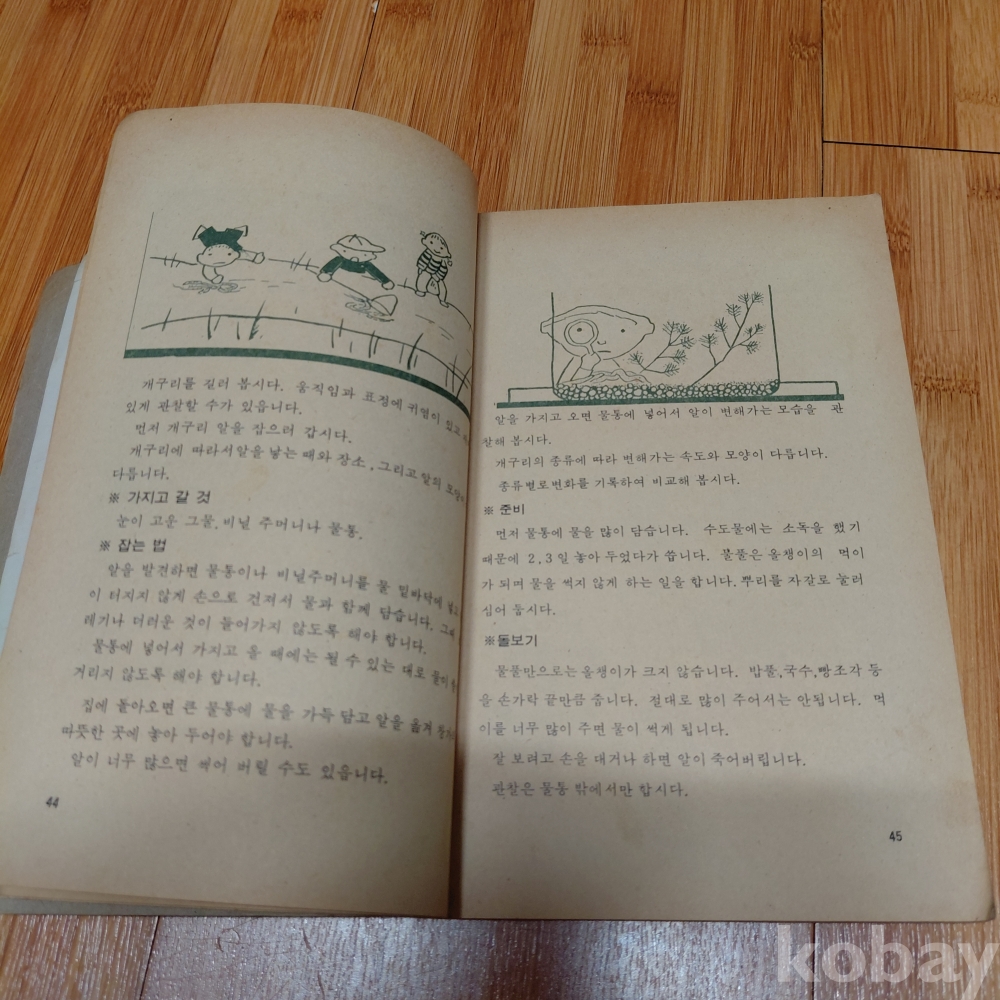 개구리를 길러 봅시다. 움직임과 표정에 귀염이 있고
있게 관찰할 수가 있읍니다.
먼저 개구리 알을 잡으러 갑시다.
개구리에 따라서알을 낳는 때와 장소, 그리고 알의 모양이
다릅니다.
※ 가지고 갈 것
눈이 고운 그물, 비닐 주머니나 물통.
※ 잡는 법
알을 발견하면 물통이나 비닐주머니를 물 밑바닥에 넣고
이 터지지 않게 손으로 건져서 물과 함께 담습니다. 그때
레기나 더러운 것이 들어가지 않도록 해야 합니다.
물통에 넣어서 가지고 올 때에는 될 수 있는 대로 물이
거리지 않도록 해야 합니다.
집에 돌아오면 큰 물통에 물을 가득 담고 알을 옮겨
따뜻한 곳에 놓아 두어야 합니다.
알이 너무 많으면 썩어 버릴 수도 있읍니다.
44
알을 가지고 오면 물통에 넣어서 알이 변해가는 모습을 관
찰해 봅시다.
개구리의 종류에 따라 변해가는 속도와 모양이 다릅니다.
종류별로변화를 기록하여 비교해 봅시다.
※ 준비
먼저 물통에 물을 많이 담습니다. 수도물에는 소독을 했기
때문에 2,3일 놓아 두었다가 씁니다. 물풀은 올챙이의 먹이
가 되며 물을 썩지 않게 하는 일을 합니다. 뿌리를 자갈로 눌러
심어 둡시다.
※돌보기
물풀만으로는 올챙이가 크지 않습니다. 밥풀,국수,빵조각 등
을 손가락 끝만큼 줍니다. 절대로 많이 주어서는 안됩니다. 먹
이를 너무 많이 주면 물이 썩게 됩니다.
잘 보려고 손을 대거나 하면 알이 죽어버립니다.
관찰은 물통 밖에서만 합시다.
45
kobay